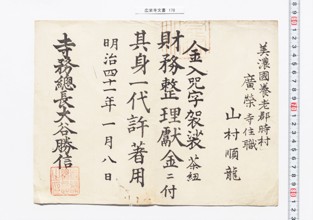 美濃國養老郡時村
廣榮寺住職
山村順龍
金入咒字袈裟 茶紐
財務整理獻金ニ付
其身一代許著用
明治四十一年一月八日
寺務總長大谷勝信